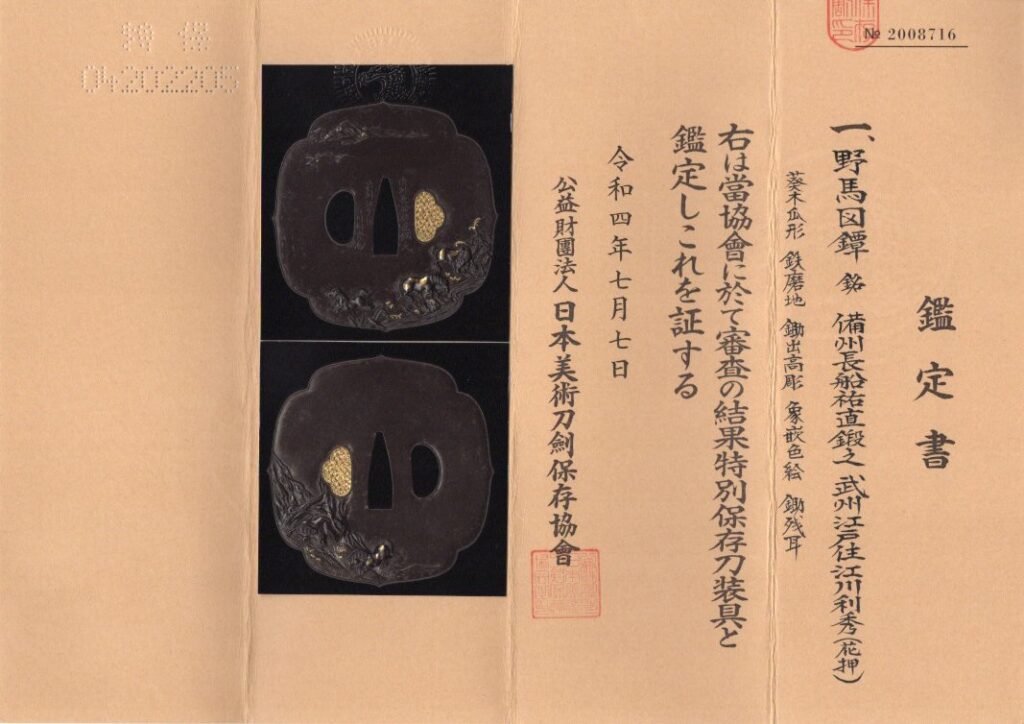 № 2008716
鑑定書
一、野馬図鐔 銘 備州長船祐直鍛之 武州江戸住江川利秀(花押)
葵木瓜形 鉄磨地 鋤出高彫 象嵌色絵 鋤残耳
右は當協會に於て審査の結果特別保存刀装具と
鑑定しこれを証する
令和四年七月七日
公益財團法人 日本美術刀劍保存協會
特保
04202205